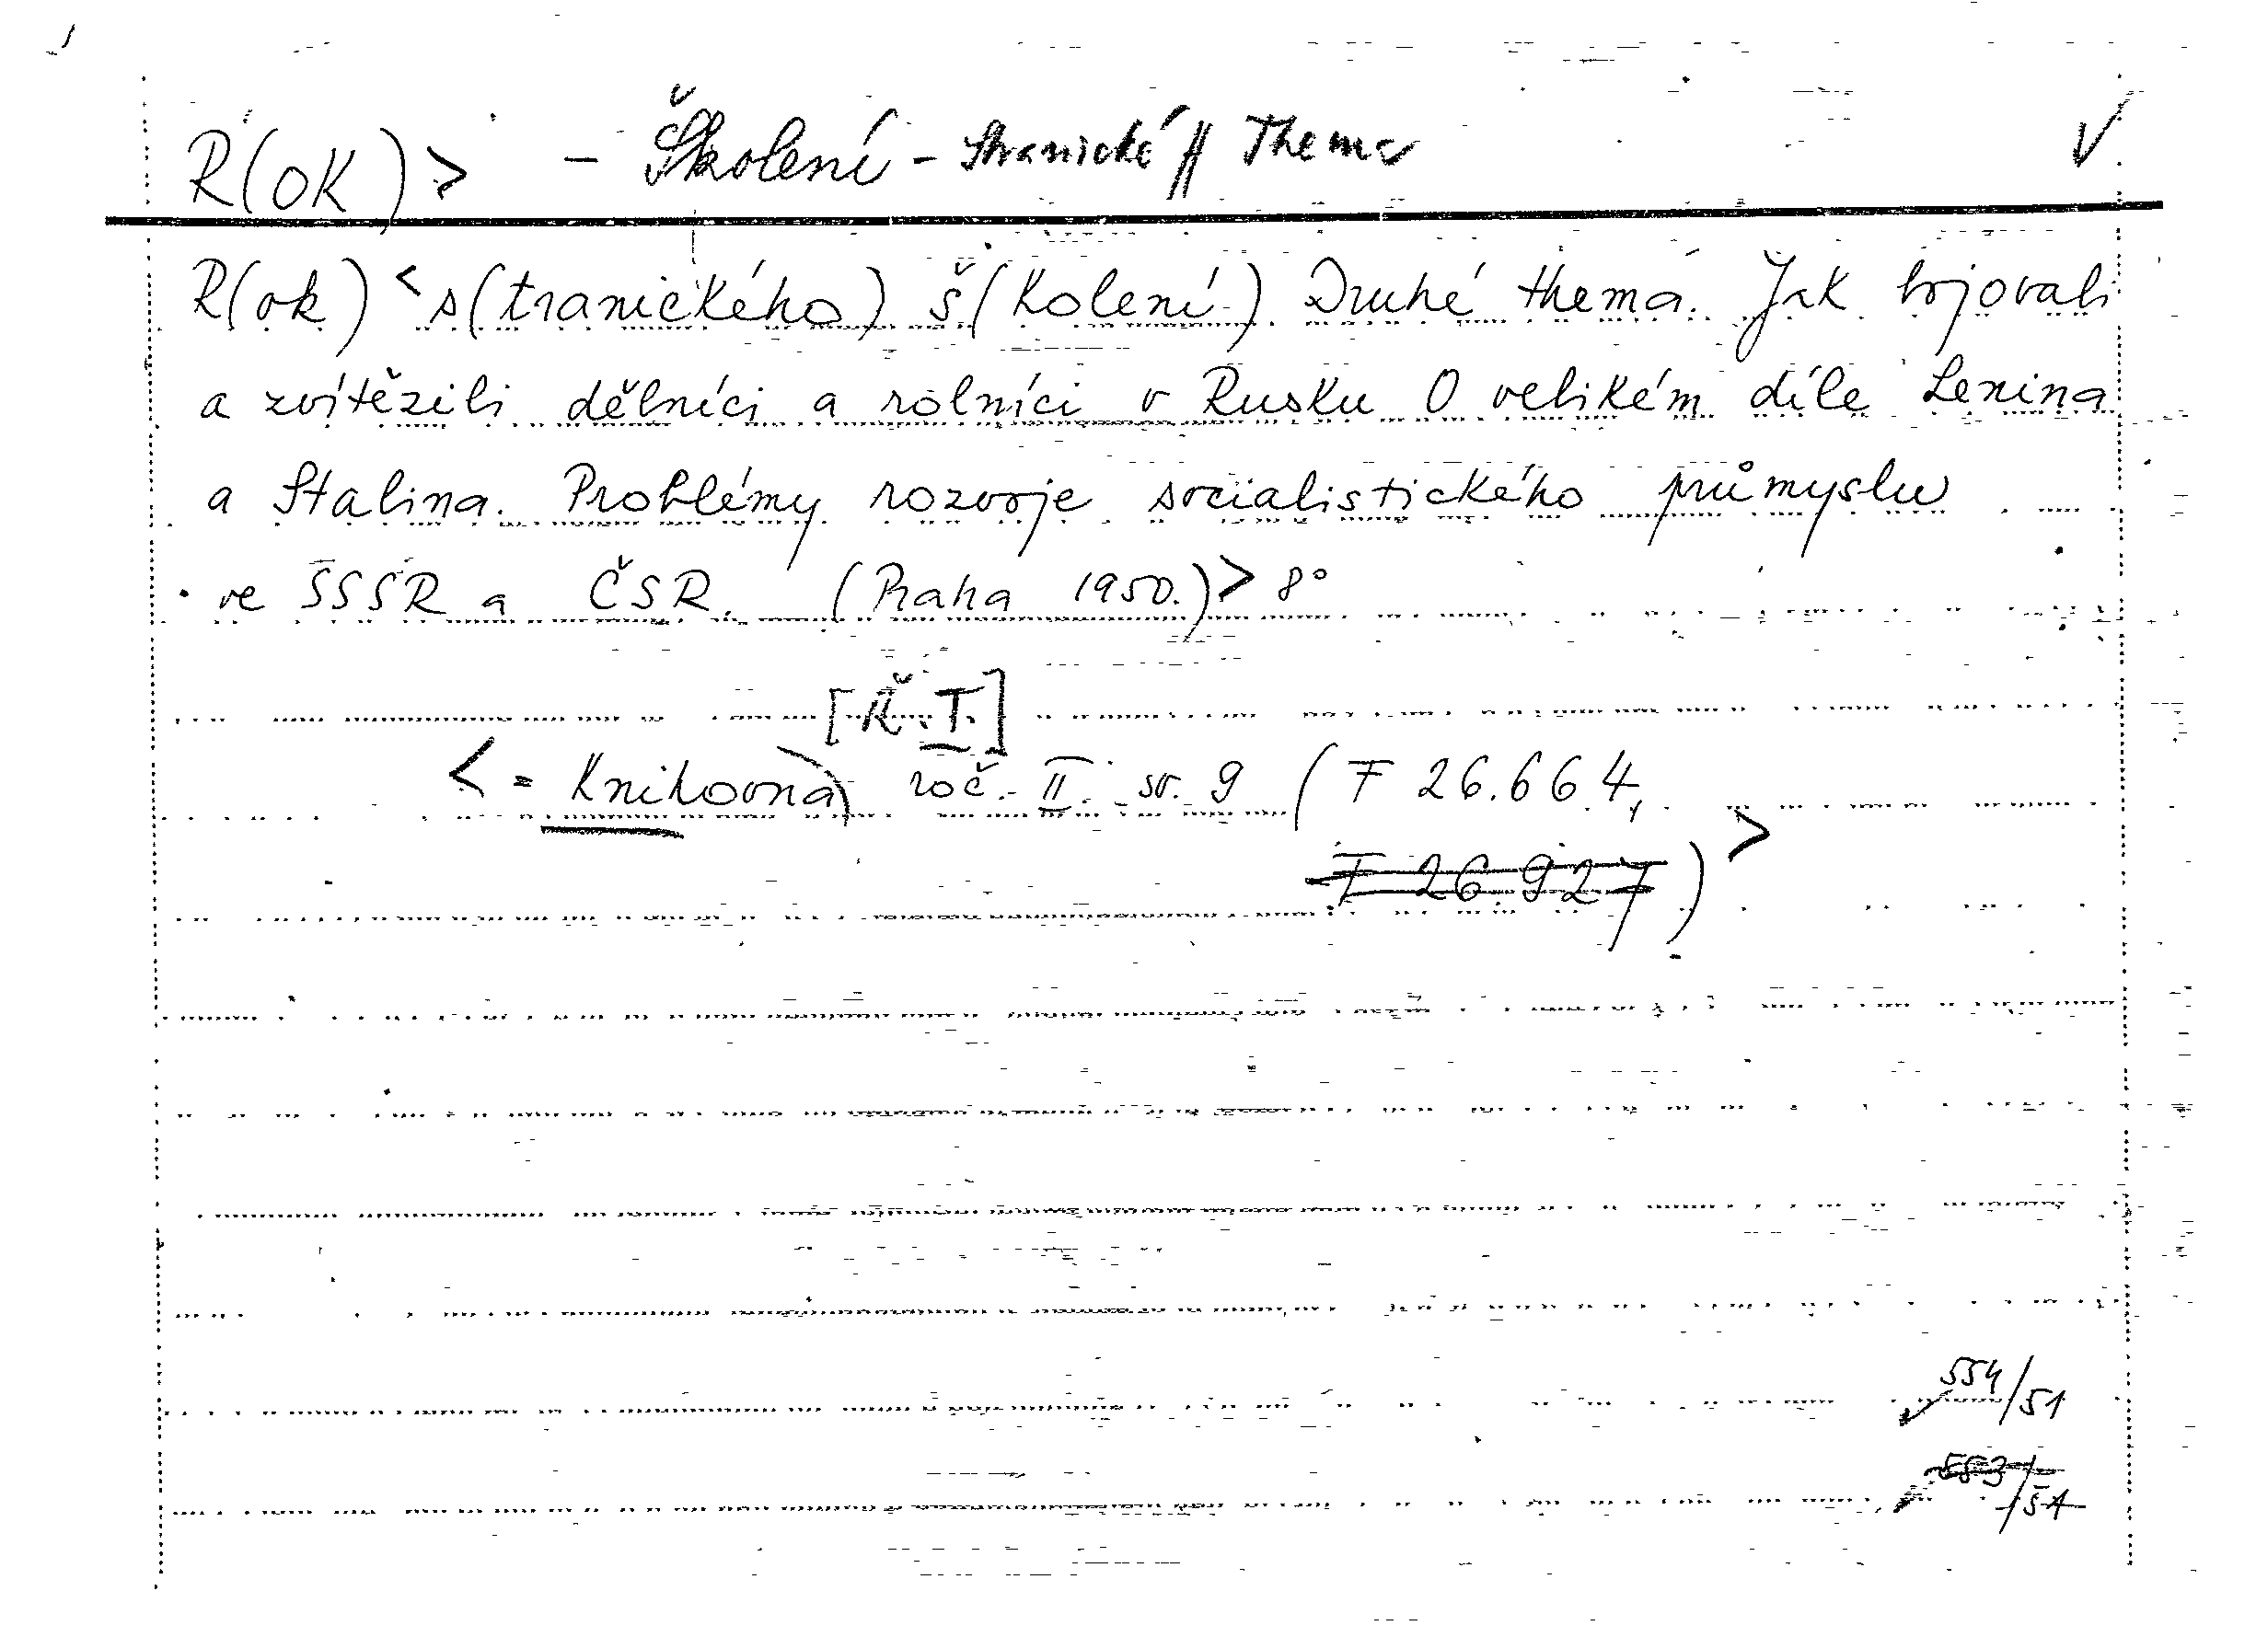 R(OK) > - Školení - Stranické // Thema V
R(ok) < s(tranického) š(kolení) Druhé thema. Jak bojovali
a zvítězili dělníci a rolníci v Rusku O velikém díle Lenina
a Stalina. Problémy rozvoje socialistického průmyslu
ve SSSR a ČSR. (Praha 1950.) > 8°
< = Knihovna) roč. II. sv. 9 (F 26.664,
F 26.927) >
554/51
553/51